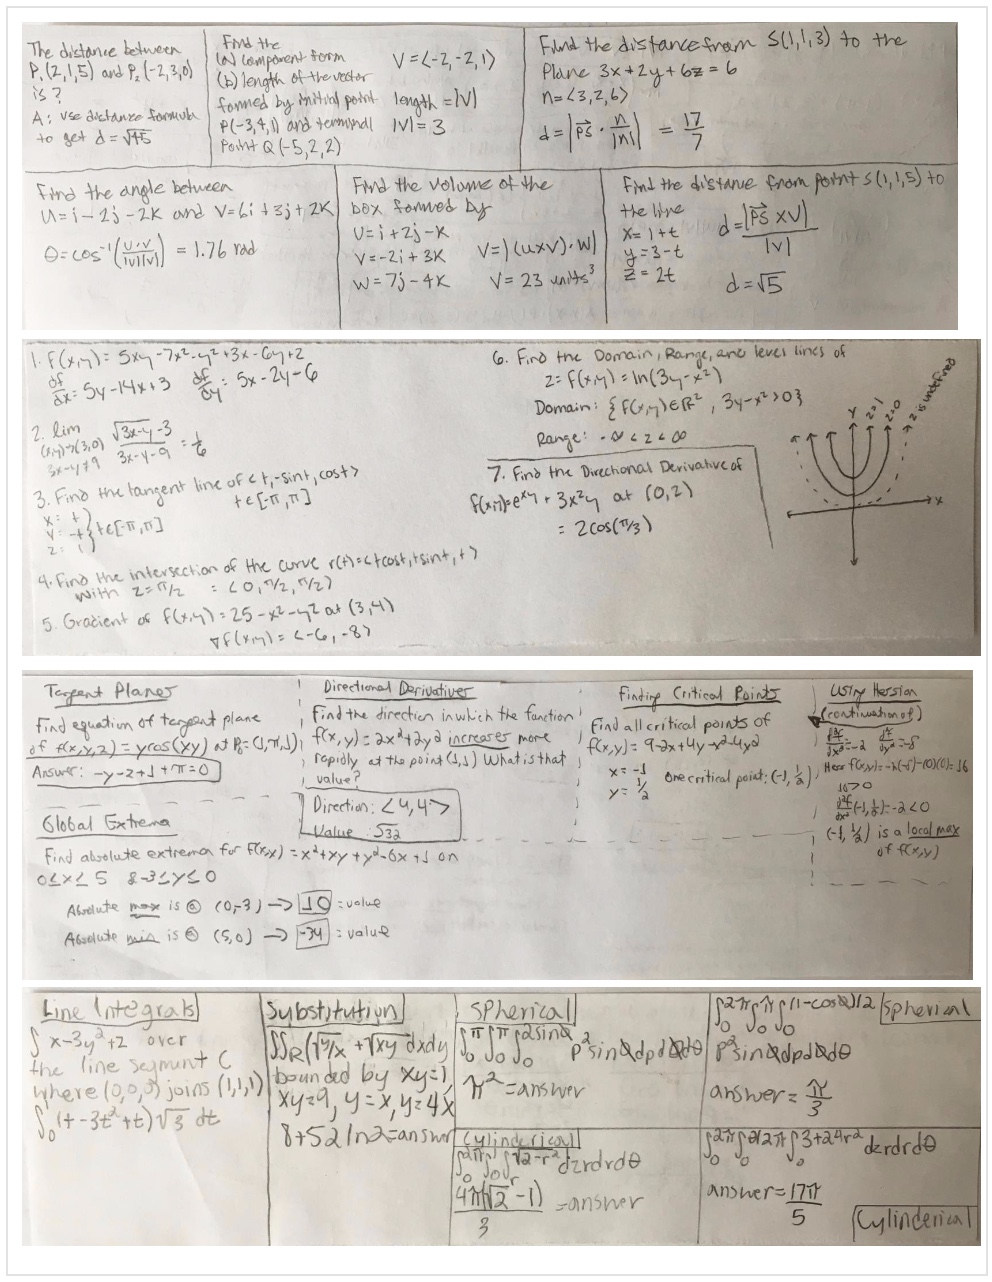 The distance between
P₁(2,1,5) and P₂(-2,3,0)
is?
A: use distance formula
to get d=√45
Find the
(a) component form
(b) length of the vector
formed by initial point
P(-3,4,1) and terminal
Point Q(-5,2,2)
V=⟨-2,-2,1⟩
length=|V|
|V|=3
Find the distance from S(1,1,3) to the
Plane 3x+2y+6z=6
n=⟨3,2,6⟩
d=|PS · n/|n|| = 17/7
Find the angle between
U=i-2j-2K and V=6i+3j+2K
θ=cos⁻¹(U·V/|U||V|) = 1.76 rad
Find the volume of the
box formed by
U=i+2j-K
V=-2i+3K
W=7j-4K
V=|(UxV)·W|
V=23 units³
Find the distance from point S(1,1,5) to
the line
x=1+t
y=3-t
z=2t
d=|PS x V|/|V|
d=√5
1. f(x,y)= 5xy-7x²-y²+3x-6y+2
df/dx=5y-14x+3 df/dy=5x-2y-6
2. lim (x,y)→(3,0) 3x-y≠9 √3x-y-3/3x-y-9 = 1/6
3. Find the tangent line of ⟨t,-sint,cost⟩
t∈[-π,π]
x= t
y= -t } t∈[-π,π]
z= 1
4. Find the intersection of the curve r(t)=⟨tcost,tsint,t⟩
with z=π/2 = ⟨0,π/2,π/2⟩
5. Gradient of f(x,y)=25-x²-y² at (3,4)
∇f(x,y)=⟨-6,-8⟩
6. Find the Domain, Range, and level lines of
z=f(x,y)=ln(3y-x²)
Domain: {f(x,y)∈ℝ², 3y-x²>0}
Range: -∞<z<∞
y
z=1
z=0
z is undefined
x
7. Find the Directional Derivative of
f(x,y)=e^xy+3x²y at (0,2)
= 2cos(π/3)
Tangent Planes
Find equation of tangent plane
of f(x,y,z)=ycos(xy) at P₀=(1,π,1)
Answer: -y-z+1+π=0
Directional Derivatives
Find the direction in which the function
f(x,y)=2x²+2y² increases more
rapidly at the point (1,1) What is that
value?
Direction: <4,4>
Value: √32
Finding Critical Points
Find all critical points of
f(x,y)=9-2x+4y-x²-4y²
x=-1
y=1/2
One critical point: (-1,1/2)
Using Hessian
(continuation of)
d²f/dx²=-2 d²f/dy²=-8
Hess f(x,y)=-2(-8)-(0)(0)=16
16>0
d²f/dx²(-1,1/2)=-2<0
(-1,1/2) is a local max
of f(x,y)
Global Extrema
Find absolute extrema for f(x,x)=x²+xy+y²-6x+1 on
0≤x≤5 &-3≤y≤0
Absolute max is @ (0,-3) → 10 = value
Absolute min is @ (5,0) → -34 = value
Line Integrals
∫ x-3y²+z over
the line segment C
where (0,0,0) joins (1,1,1)
∫₀¹(t-3t²+t)√3 dt
Substitution
∫∫R(√y/x+√xy dxdy
bounded by xy=1,
xy=9, y=x, y=4x
8+52ln2=answer
Spherical
∫₀^π∫₀^π∫₀^2sinϕ ρ²sinϕdρdϕdθ
π²=answer
∫₀^2π∫₀^π∫₀^(1-cosϕ)/2 Spherical
ρ²sinϕdρdϕdθ
answer=π/3
Cylinderical
∫₀^2π∫₀^1∫r^√2-r² dzrdrdθ
4π(√2-1)/3 =answer
∫₀^2π∫₀^θ/2π∫₀^3+24r² dzrdrdθ
answer=17π/5
Cylinderical